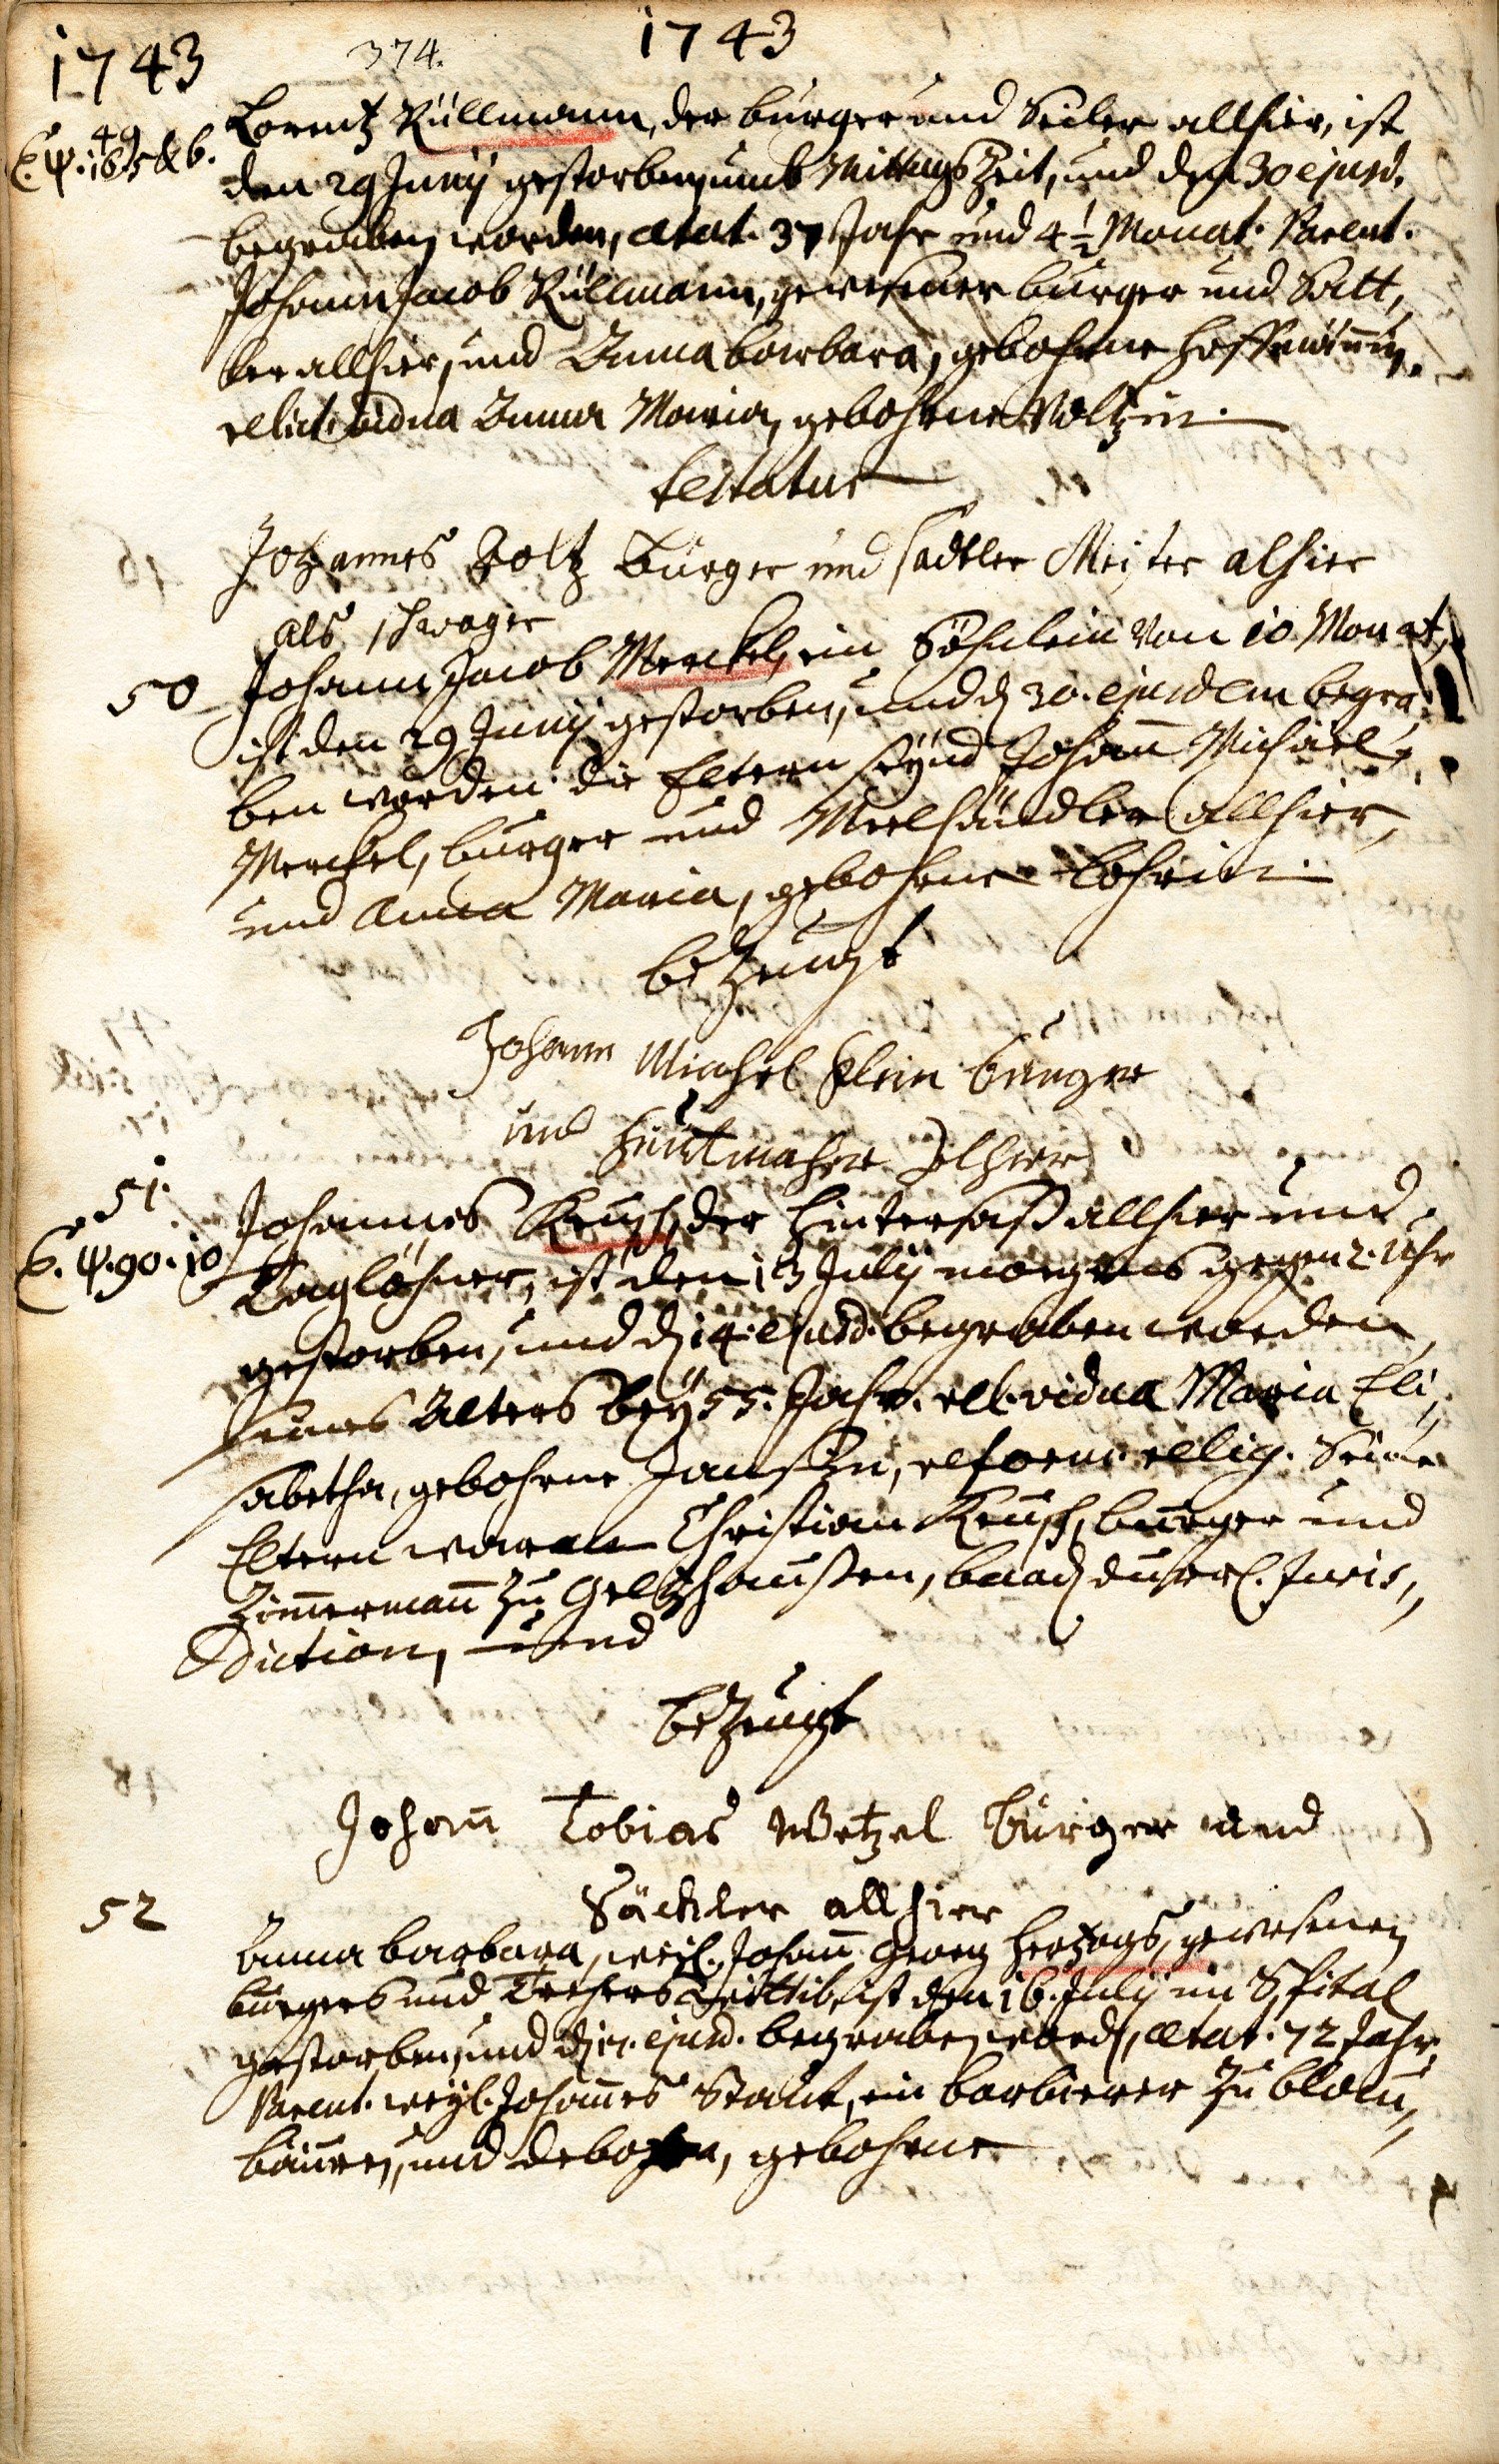 1743
374.
1743
49
C. ψ. 16. 5 & 6.
Lorentz Rüllmann, der burger und Seiler allhier, ist
den 29 Junij gestorben, umb Mittags Zeit, und den 30 ejusd.
begraben worden, ætat. 37 Jahr und 4 ½ Monat. Parent.
Johann Jacob Rüllmann, gewesener burger und Satt,
ler allhier, und Anna barbara, gebohrne Hoffmännin.
relict. vidua Anna Maria, gebohrne Voltzin.
testatur
Johannes Foltz burger und sadtler Meister alhier
als schwager
50 Johann Jacob Merckel, ein Söhnlein von 10. Monat,
ist den 29 Junij gestorben, und d. 30. ejusdem begra,
ben worden. die Eltern seynd Johann Michael
Merckel, burger und Meelhändler allhier,
und Anna Maria, gebohrne Lohrin.
bezeugt
Johann Michel Klein burger
und Huutmaher alhier
51.
C. ψ. 90. 10
Johannes Keusch, der Hintersaß allhier und
Taglöhner, ist den 13 Julij morgens gegen 2. Uhr
gestorben, und d. 14. ejusd. begraben worden,
seines Alters bey 55. Jahr. rel. vidua Maria Eli,
sabetha, gebohrne Janßin, reform. relig. Seine
Eltern waren Christian Keusch, burger und
Zimmermann zu Geltzhaußen, baad. durl. Juris,
diction, und
bezeugt
Johann Tobias Wetzel burger und
Säckler allhier
52
Anna barbara, weyl. Johann Georg Hertzogs, gewesenen
burgers und Wittib, ist den 16. Julij im Spital
gestorben, und d. 17. ejusd. begraben word., ætat. 72 Jahr,
Parent. weyl. Johannes Staut, ein barbierer zu blau,
bäuren, und debora, gebohrne